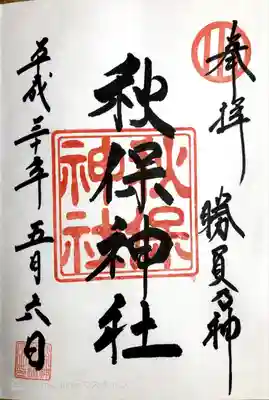 奉拝
勝負の神
秋保神社
秋保
神社
平成三十年五月六日